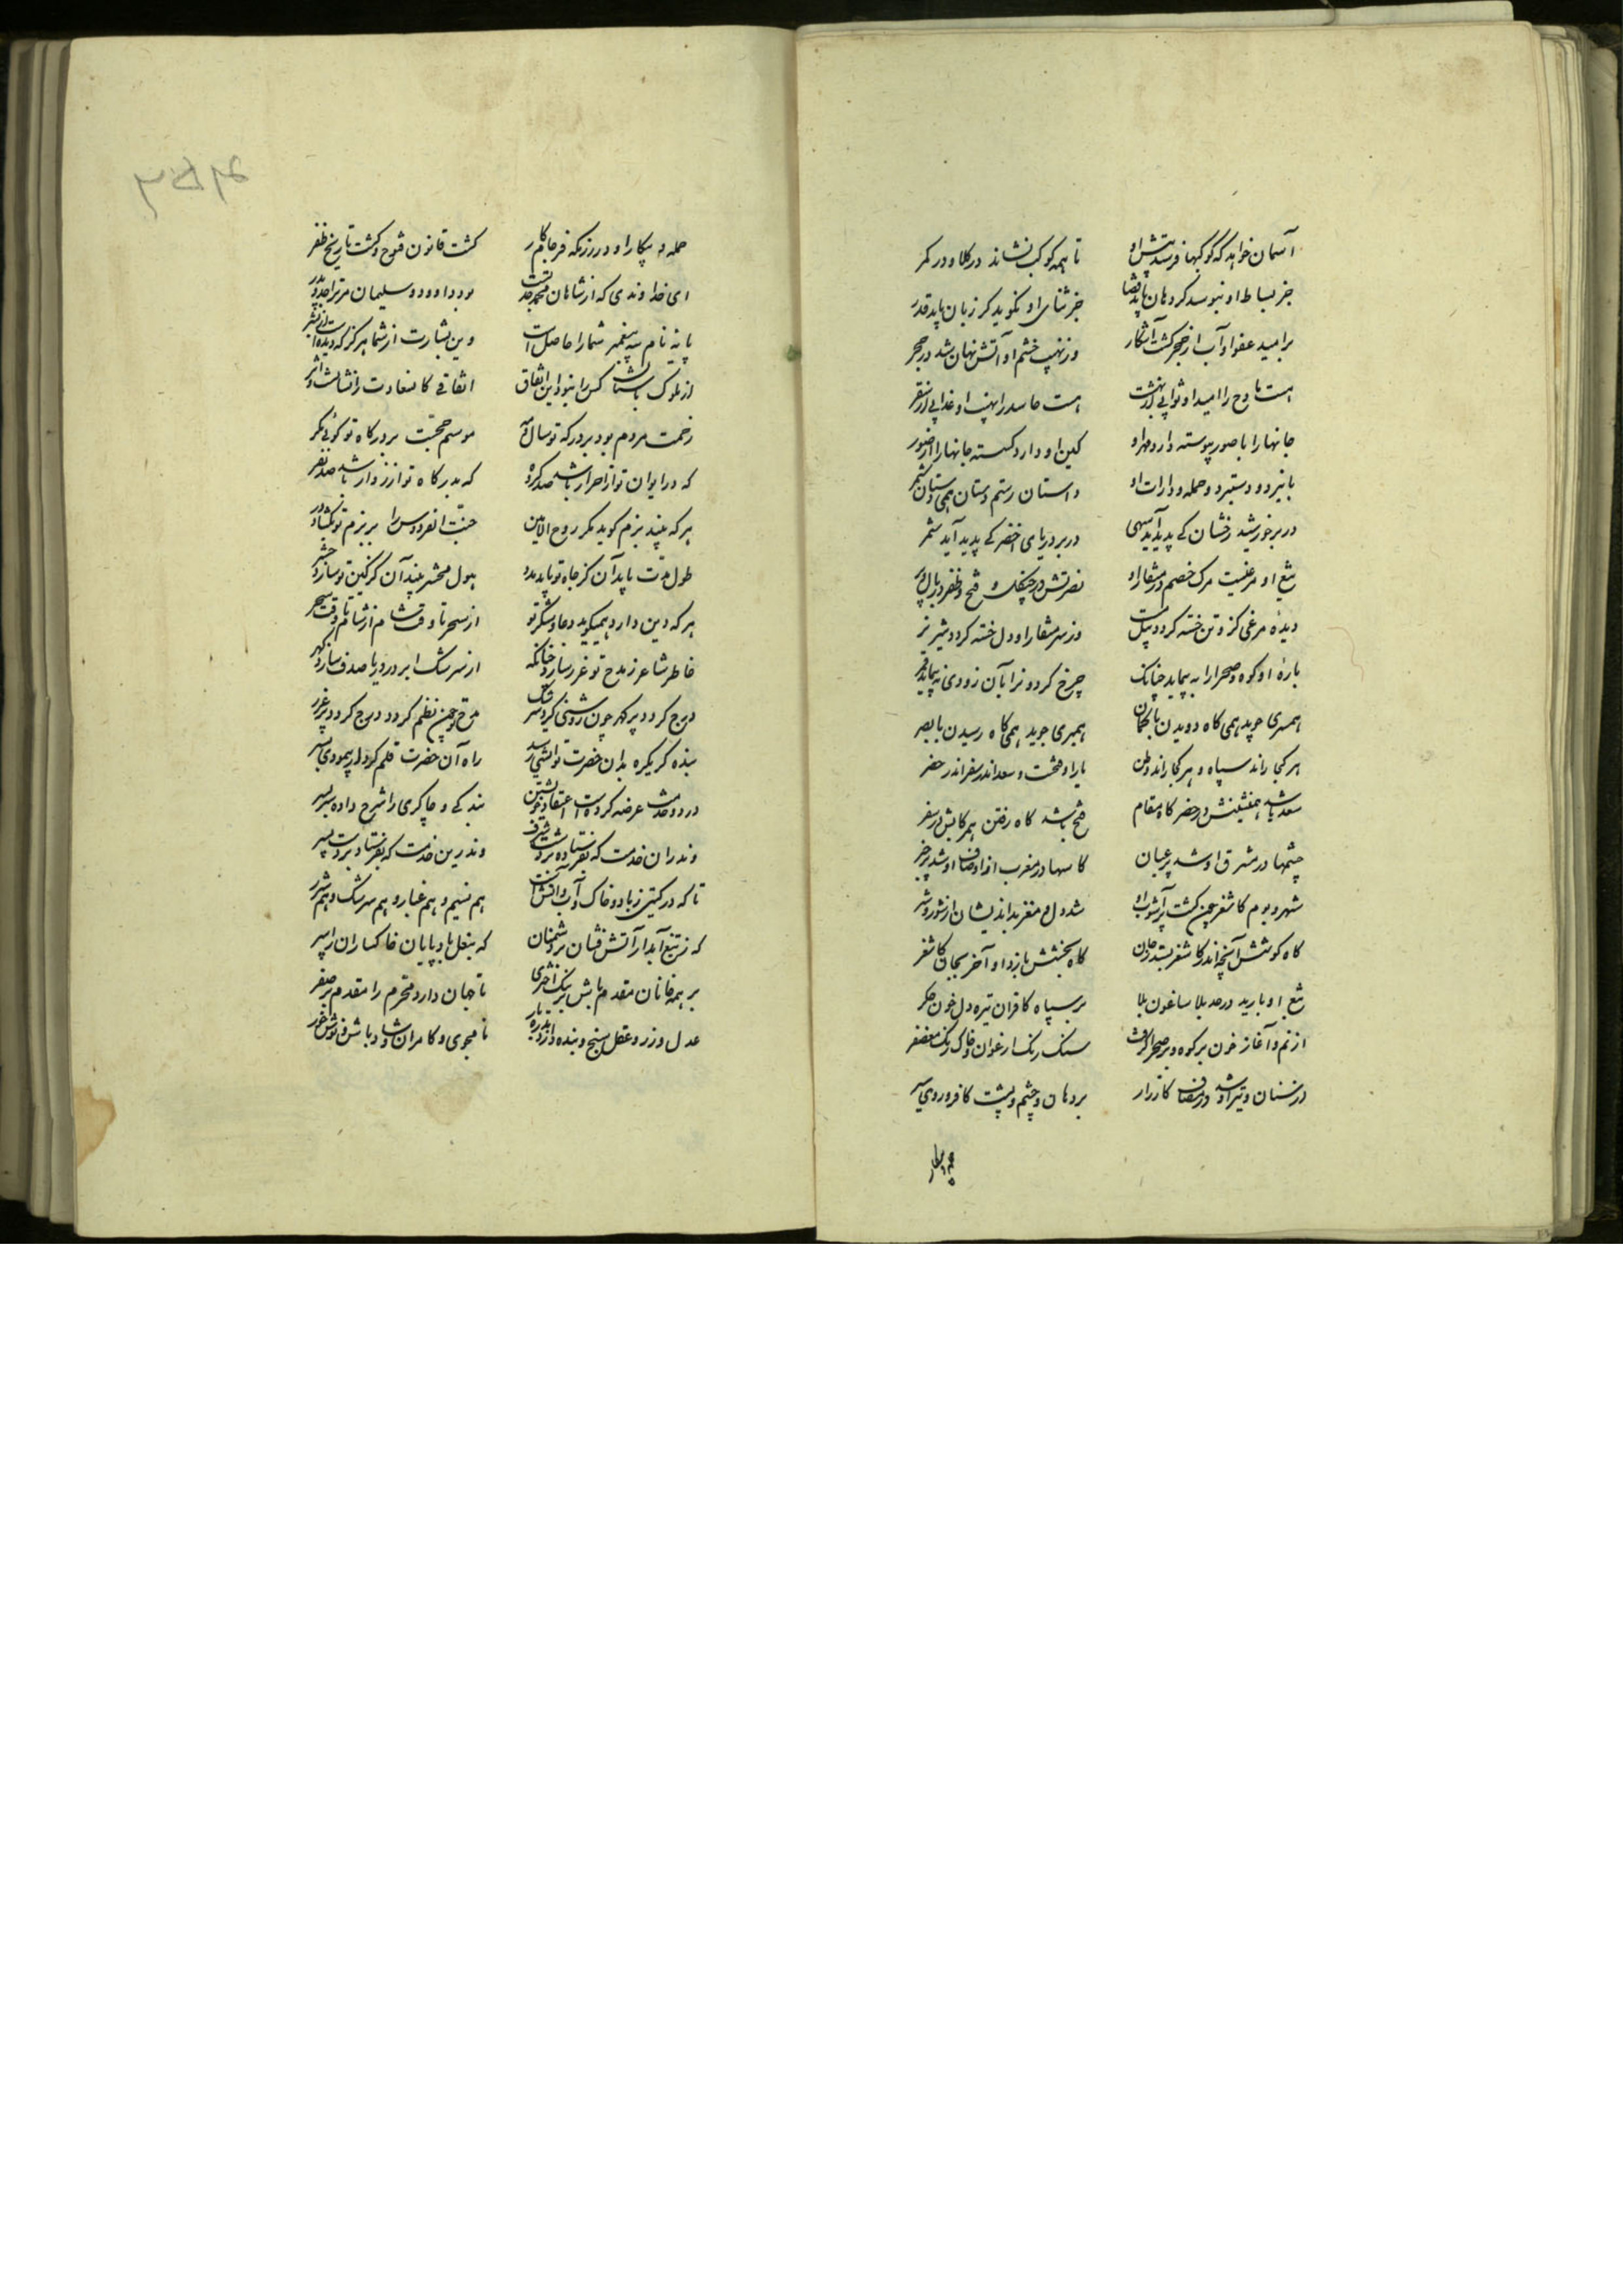 آسمان خواهد که کوکبها فرستد پیش او تا همه کوکب نشاند در کلاه و در کمر
جز بساط او نبوسد گر دهان یابد قضا جز ثنای او نگوید گر زبان یابد قدر
بر امید عفو او آب از حجر گشت آشکار وز نهیب خشم او آتش نهان شد در حجر
هست مادح را امید او ثوابی از بهشت هست حاسد را نهیب او عذابی از سقر
جانها را با صور پیوسته دارد مهر او کین او دارد گسسته جانها را از صور
با نبرد و دستبرد و حمله و دارات او داستان رستم دستان همی دستان شمر
در بر خورشید رخشان کی پدید آید سهی در بر دریای اخضر کی پدید آید شمر
تیغ او مرغیست مرگ خصم در منقار او نصرتش در چنگل و فتح و ظفر در بال و پر
دیده مرغی کز و تن خسته گردد پیل مست وز سر منقار او دل خسته گردد شیر نر
باره او کوه و صحرا را به پیماید چنانک چرخ گردونرا بآن زودی نه پیماید قمر
همسری جوید همی گاه دویدن با گمان همبری جوید همی گاه رسیدن با بصر
هر کجا راند سپاه و هر کجا راند وطن یار او بخت و سعد اندر سفر اندر حضر
سعد باشد همنشینش در حضر گاه مقام فتح باشد گاه رفتن همرکابش در سفر
چشمها در مشرق او شد پر عیان گاسها در مغرب از اوصاف او شد پر خبر
شهر و بوم کاشغر چون گشت پر آشوب او شد دل و مغز بداندیشان از شور و شر
گاه کوشش آنچه اندر کاشغر بستد بجان گاه بخشش باز داد او آخر بجان کاشغر
تیغ او بارید در حد بلاساغون بلا بر سپاه کافران تیره دل خون جگر
از نم و آغاز خون بر کوه و بر صحرا گرفت سنگ رنگ ارغوان و خاک رنگ معصفر
در سنان و تیر او شد در مصاف کارزار بر دهان و چشم و پشت کافر و روی
حمله و پیکار او در رزمگه فرجام کار گشت قانون فتوح و گشت تاریخ ظفر
ای خداوندی که از شاهان محمد جد تست بود داوود و سلیمان مر ترا جد و پدر
پایه نام سه پیغمبر شما را حاصل است وین بشارت از شما هرگز که دیده است ای بشر
از ملوک باستان کس را نبود این اتفاق اتفاقی کاسعادت را نشانست و اثر
زحمت مردم بود بر درگه تو سال و مه موسم حجست بر درگاه تو گوئی مگر
که در ایوان تو از احرار باشد صد گروه که بدرگاه تو از زوار باشد صد نفر
هر که بیند بزم گوید مگر روح الامین جنت الفردوس را بر بزم تو بگشاد در
طول مدت یابد آن کز جاه تو یابد مدد هول محشر بیند آن کز کین تو سازد حشر
هر که دین دارد همیگوید دعا و شکر تو از سحر تا وقت شام از شام تا وقت سحر
خاطر شاعر ز مدح تو غرر سازد چنانکه از سرشک ابر در دریا صدف سازد گهر
درج گردد پر گهر چون روشنی گیرد سرشک مدح چون نظم گردد درج گردد پر غرر
بنده گر یکره بدان حضرت توانستی رسید راه آن حضرت قلم کردار پیمودی بسر
در دو خدمت عرضه کردست اعتقاد خویشتن بندگی و چاکری را شرح داده سربسر
وندران خدمت که بفرستاده بردست شرف وندرین خدمت که بفرستاد بردست پسر
تا که در گیتی ز باد و خاک و آب و آتش است هم نسیم و هم غبار و هم سرشک و هم شرر
که ز تیغ آبدار آتش فشان بر دشمنان که بنعل بادپایان خاکساران را سپر
بر همه خانان مقدم باش بر نیک اختری تا جهان دارد محرم را مقدم بر صفر
عدل ورز و عقل سنج و بنده دار و بدره بار نامجوی و کامران و شاد باش و نوش خور